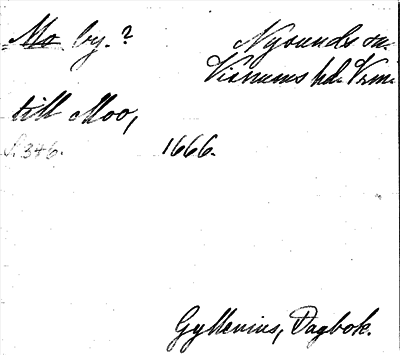 Mo by. ?
Nysunds sn.
Visnums hd. Vrml.
till Moo,
S. 346. 1666.
Gyllenius, Dagbok.